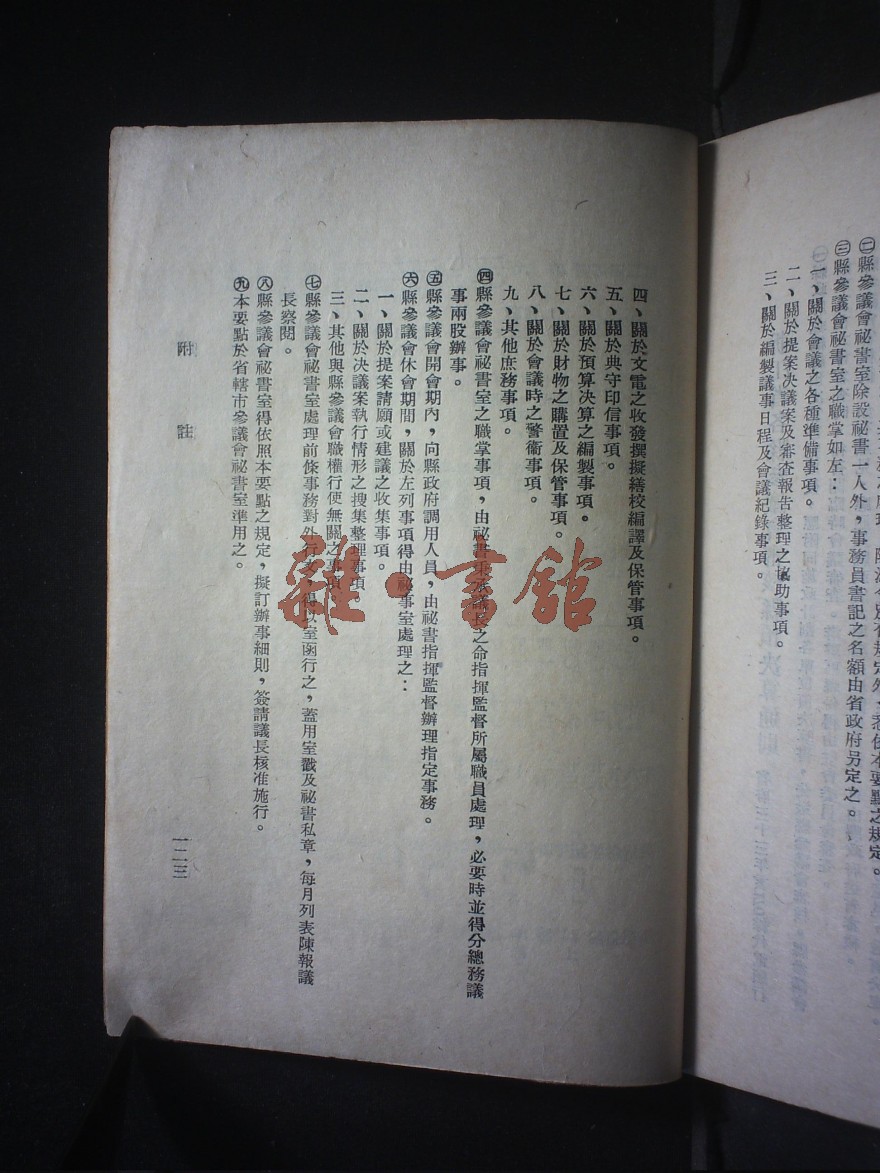 ㊁縣參議會祕書室除設祕書一人外，事務員書記之名額由省政府另定之。
㊂縣參議會祕書室之職掌如左：
一、關於會議之各種準備事項。
二、關於提案決議案及審查報告整理之協助事項。
三、關於編製議事日程及會議紀錄事項。
四、關於文電之收發撰擬繕校編譯及保管事項。
五、關於典守印信事項。
六、關於預算決算之編製事項。
七、關於財物之購置及保管事項。
八、關於會議時之警衞事項。
九、其他庶務事項。
㊃縣參議會祕書室之職掌事項，由祕書秉承議長之命指揮監督所屬職員處理，必要時並得分總務議
事兩股辦事。
㊄縣參議會開會期內，向縣政府調用人員，由祕書指揮監督辦理指定事務。
㊅縣參議會休會期間，關於左列事項得由祕事室處理之：
一、關於提案請願或建議之收集事項。
二、關於決議案執行情形之搜集整理事項。
三、其他與縣參議會職權行使無關之事項。
㊆縣參議會祕書室處理前條事務對外行文，得以室函行之，蓋用室戳及祕書私章，每月列表陳報議
長察閱。
㊇縣參議會祕書室得依照本要點之規定，擬訂辦事細則，簽請議長核准施行。
㊈本要點於省轄市參議會祕書室準用之。
附註
一二三
雜·書館